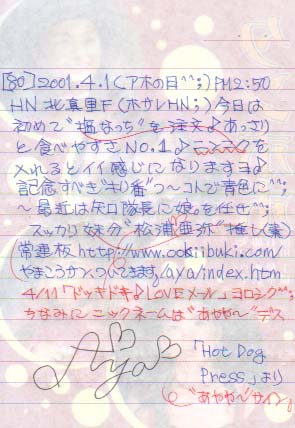 [80] 2001.4.1(アホの日^^;) PM2:50
HN 北真里F(ホサレHN;)今日は
初めて“塩なっち”を注文♪あっさり
と食べやすさNO.1♪ニンニクを
メれるとイイ感じになりますヨ♪
記念すべき“キリ番”つ〜コトで青色に^^;
〜最近は矢口隊長に娘。を任せ^^;
スッカリ妹分“松浦亜弥”推し(葉)
常連板 http://www.ookiibuki.com/
/aya/index.htm
4/11「ドッキドキ♪LOVEメール」ヨロシク^^;
ちなみにニックネームは“あやや〜”デス
Aya
「Hot Dog
Press」より
“あやや〜”サイン。